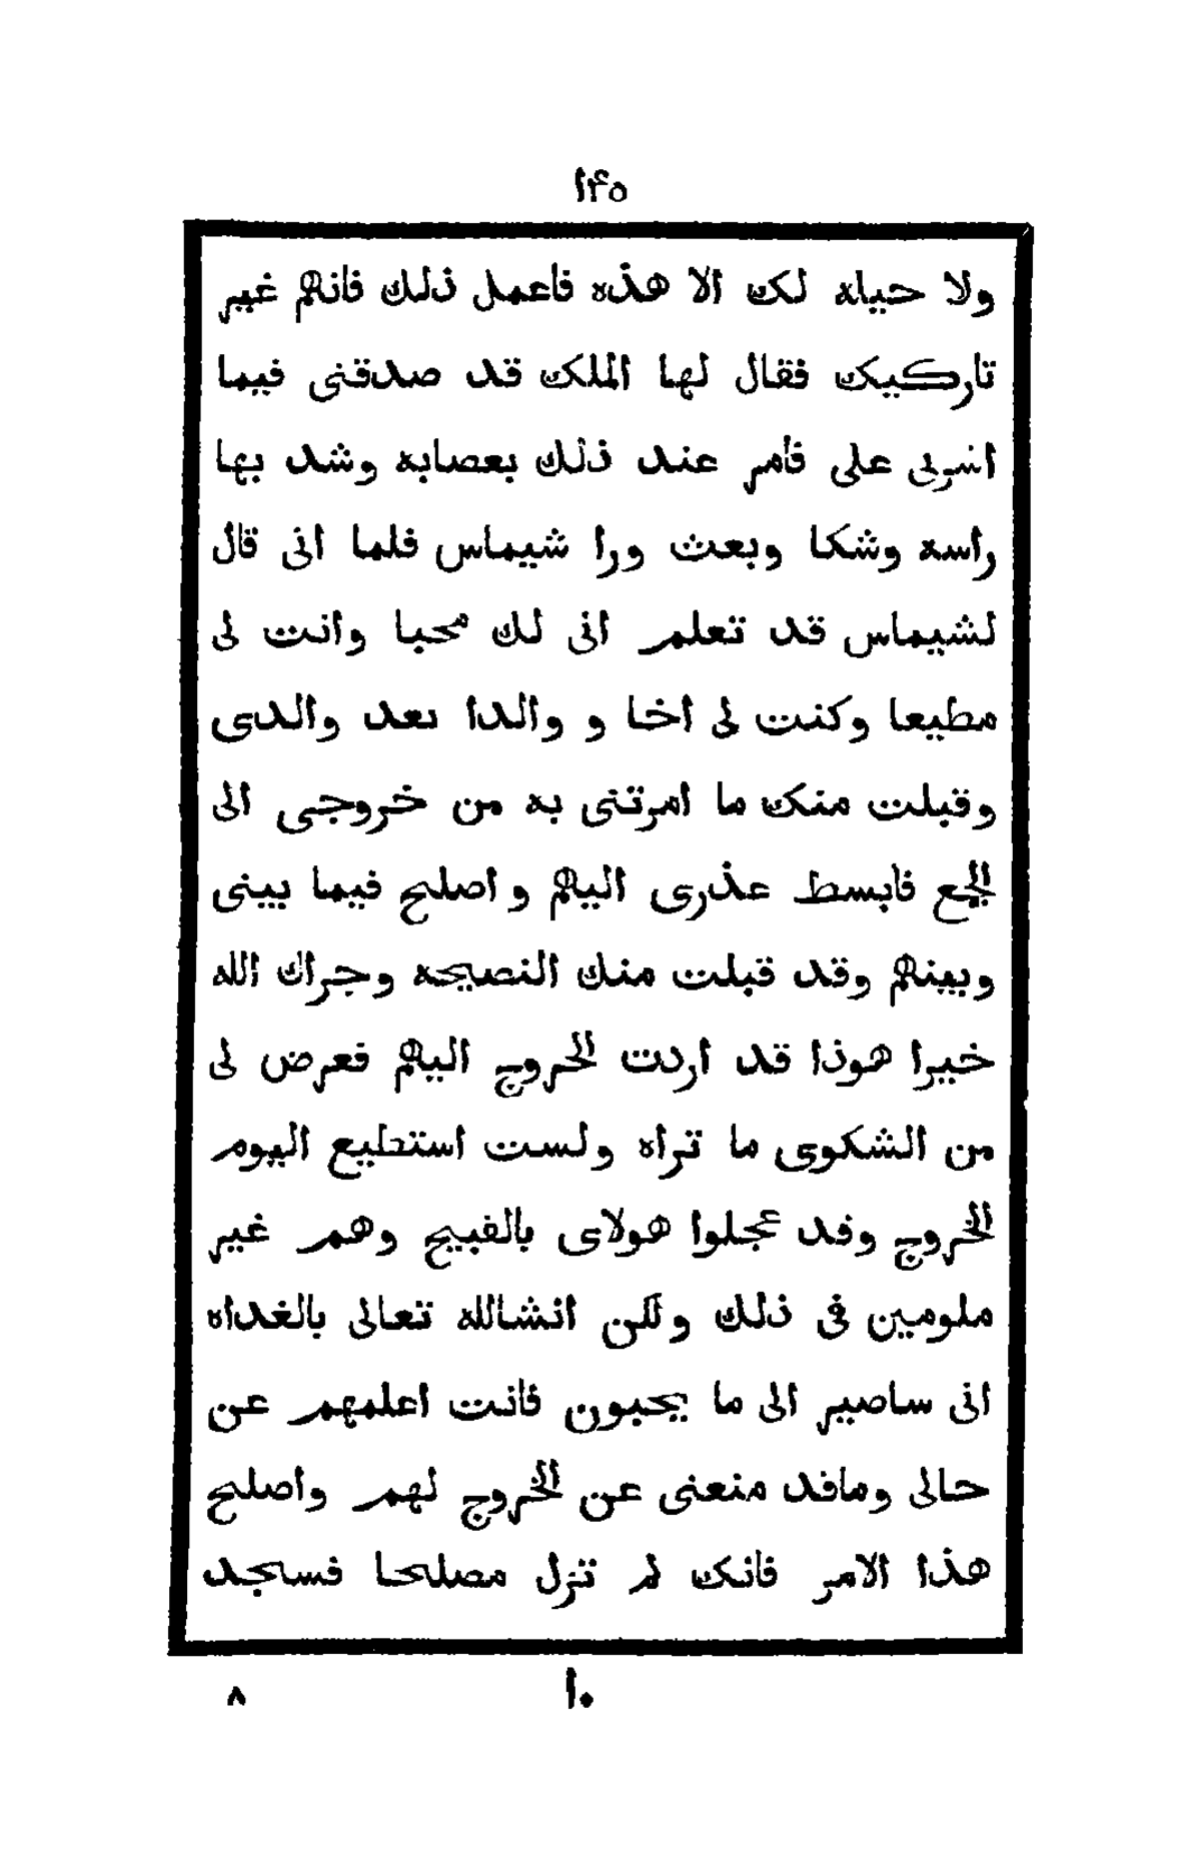 ١۴٥
ولا حياه لك الا هذه فاعمل ذلك فانهم غير
تاركيك فقال لها الملك قد صدقنى فيما
اشرتى على فامر عند ذلك بعصابه وشد بها
راسه وشكا وبعث ورا شيماس فلما اتى قال
لشيماس قد تعلم انى لك محبا وانت لى
مطيعا وكنت لى اخا و والدا بعد والدى
وقبلت منك ما امرتنى به من خروجى الى
الجمع فابسط عذرى اليهم و اصلح فيما بينى
وبينهم وقد قبلت منك النصيحه وجراك الله
خيرا هوذا قد اردت الخروج اليهم فعرض لى
من الشكوى ما تراه ولست استطيع اليوم
الخروج وفد عجلوا هولاى بالقبيح وهم غير
ملومين فى ذلك ولكن انشالله تعالى بالغداه
انى ساصير الى ما يحبون فانت اعلمهم عن
حالى ومافد منعنى عن الخروج لهم واصلح
هذا الامر فانك لم تزل مصلحا فسجد
١٠
٨